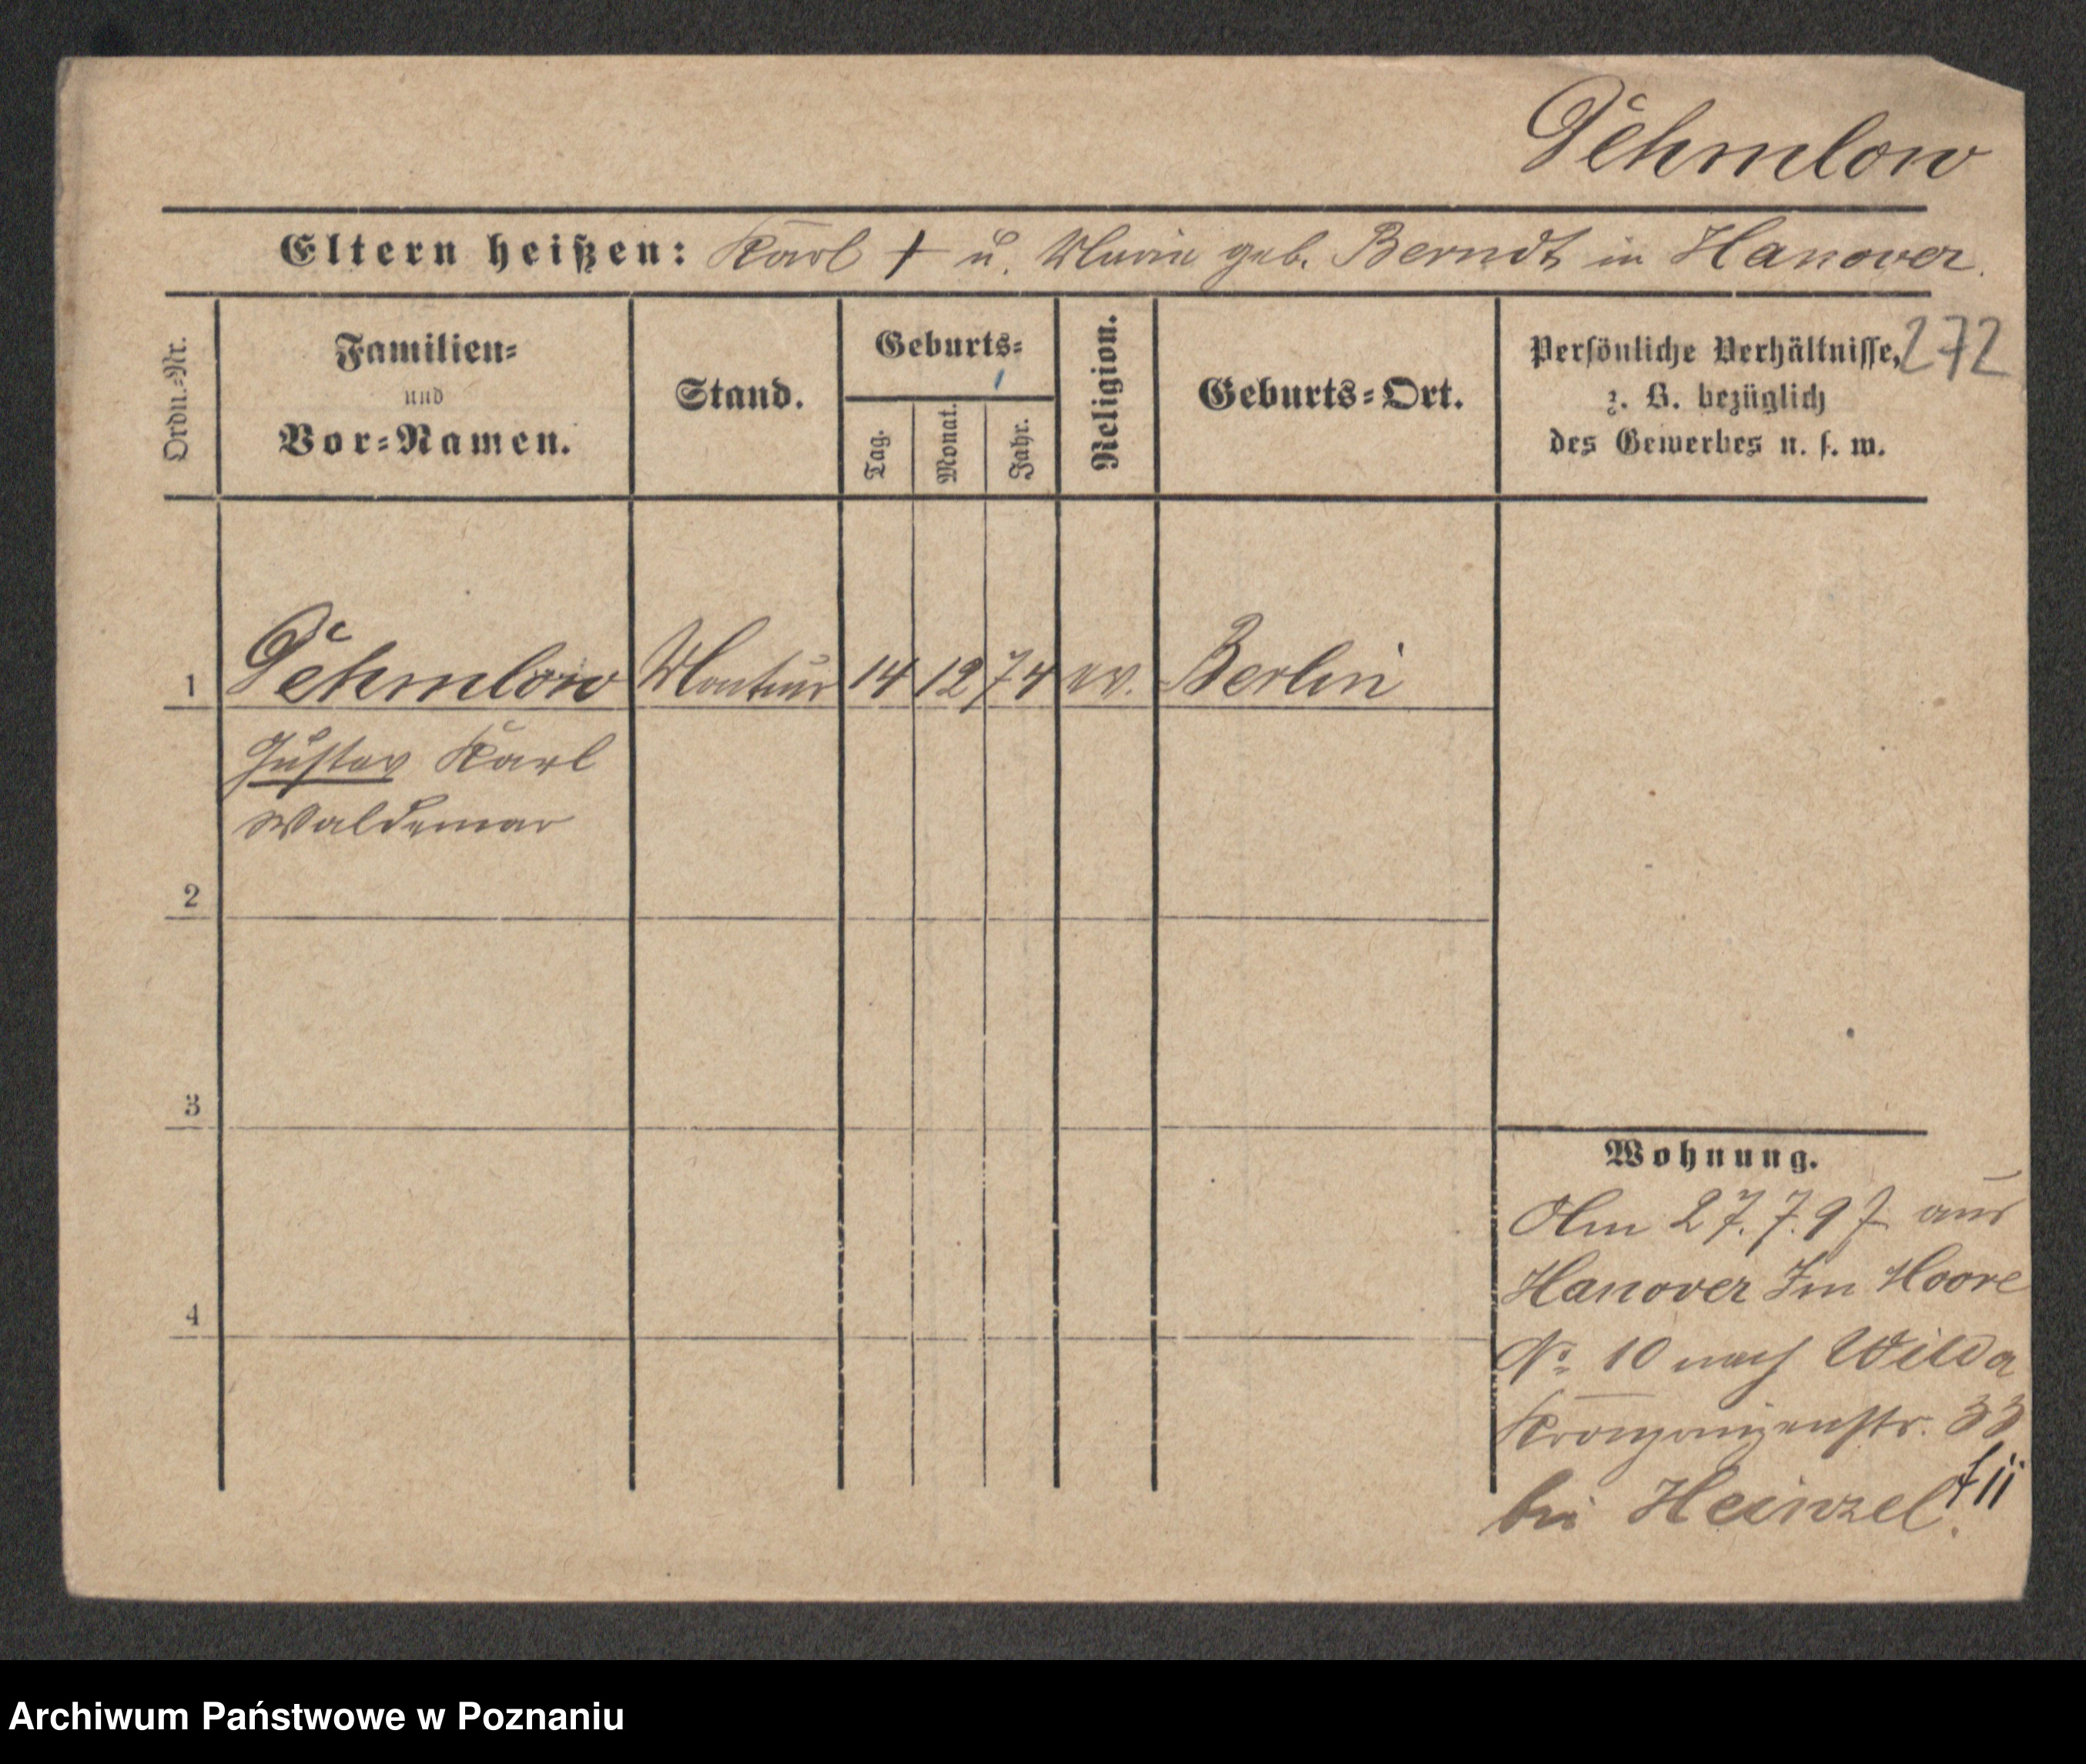 Dehmlow
Eltern heißen: Karl + u. Marie geb. Berndt in Hanover.
Ordn.=Nr.
Familien=
und
Vor=Namen.
Stand.
Geburts=
Tag.
Monat.
Jahr.
Religion.
Geburts=Ort.
Persönliche Verhältnisse, 272
z. B. bezüglich
des Gewerbes u. s. w.
1 Dehmlow Monteur 14 12 74 ev. Berlin
Gustav Karl
Waldemar
2
3
4
Wohnung.
Am 27.7.97 aus
Hanover Im Moore
No 10 nach Wilda
Kronprinzenstr. 33
bei Heinzel.
Archiwum Państwowe w Poznaniu